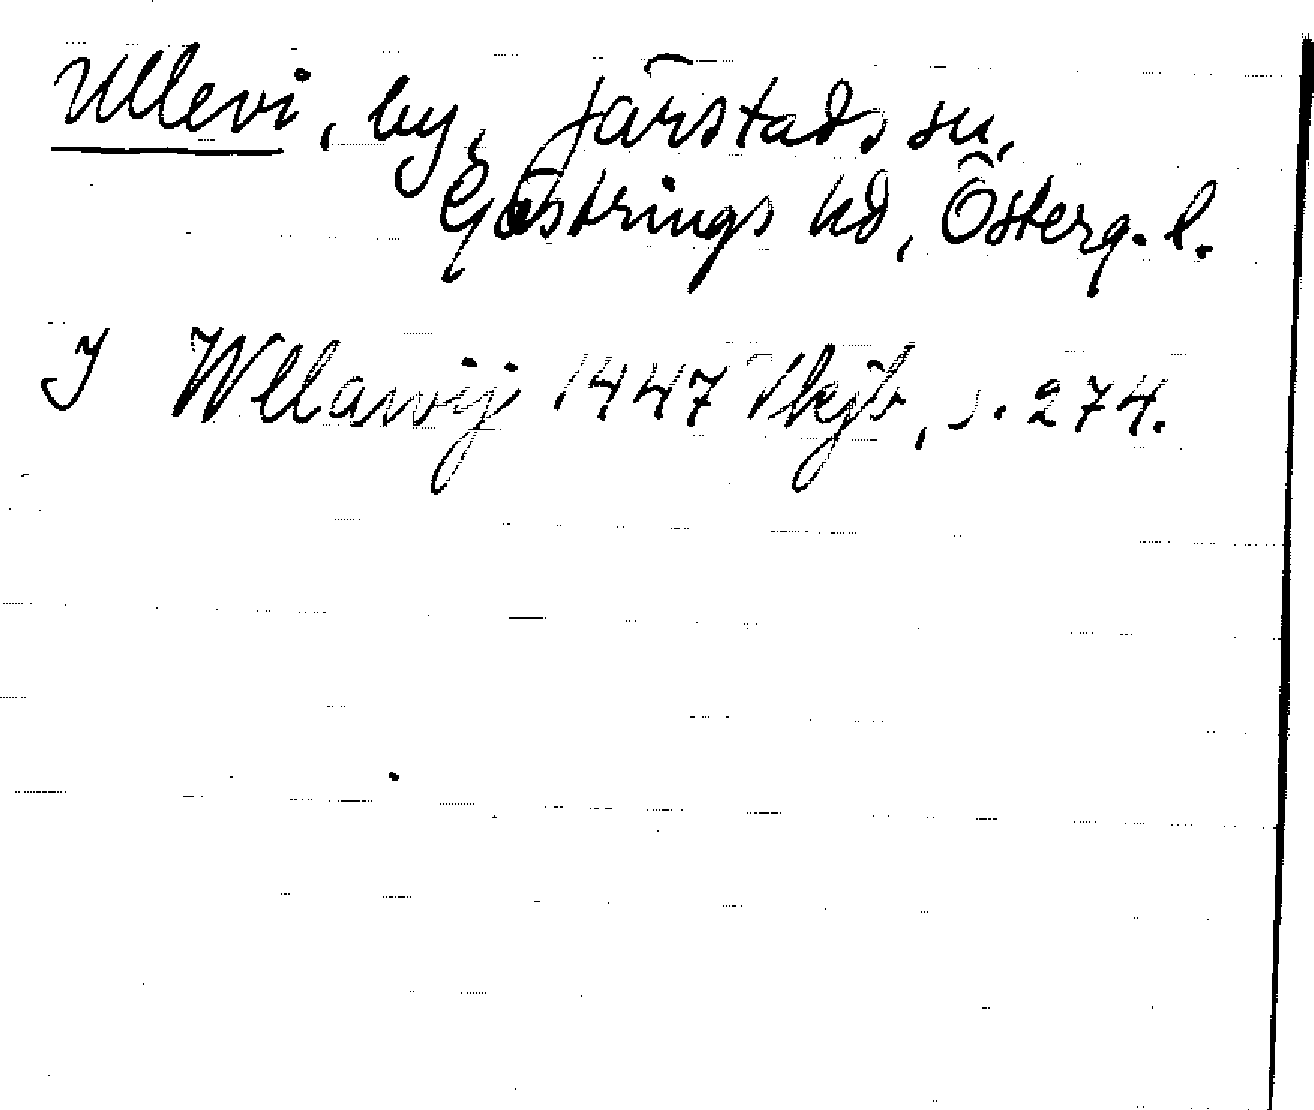 Ullevi, by, Järstads sn,
Göstrings hd, Österg. l.
J Wllawij 1447 Vkjb, s. 274.